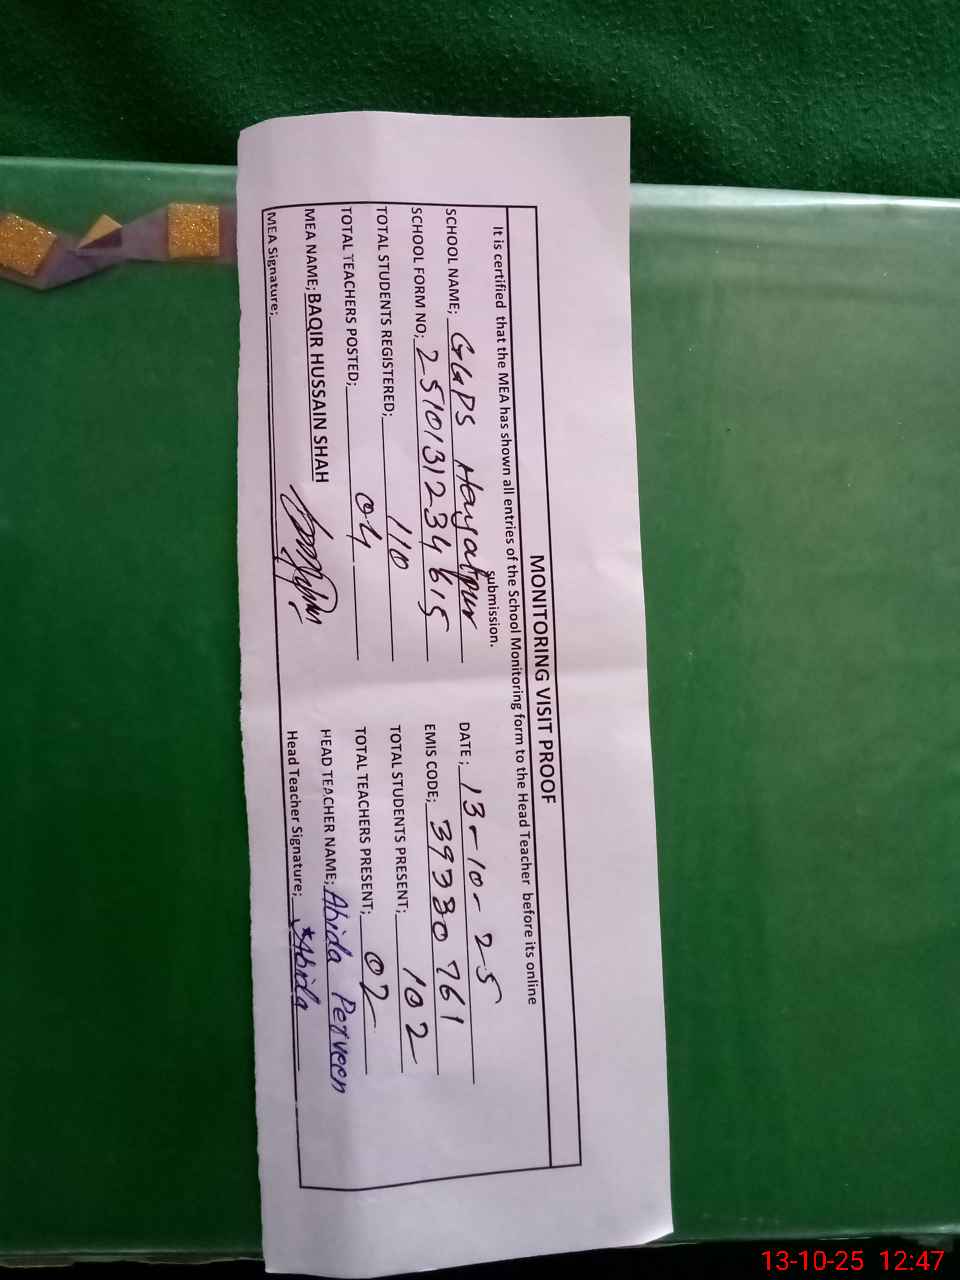 MONITORING VISIT PROOF
It is certified that the MEA has shown all entries of the School Monitoring form to the Head Teacher before its online
submission.
SCHOOL NAME; GGPS Hayatpur DATE; 13-10-25
SCHOOL FORM NO; 2510131234615 EMIS CODE; 39330761
TOTAL STUDENTS REGISTERED; 110 TOTAL STUDENTS PRESENT; 102
TOTAL TEACHERS POSTED; 04 TOTAL TEACHERS PRESENT; 02
MEA NAME; BAQIR HUSSAIN SHAH HEAD TEACHER NAME; Abida Perveen
MEA Signature; Head Teacher Signature; Abida
13-10-25 12:47